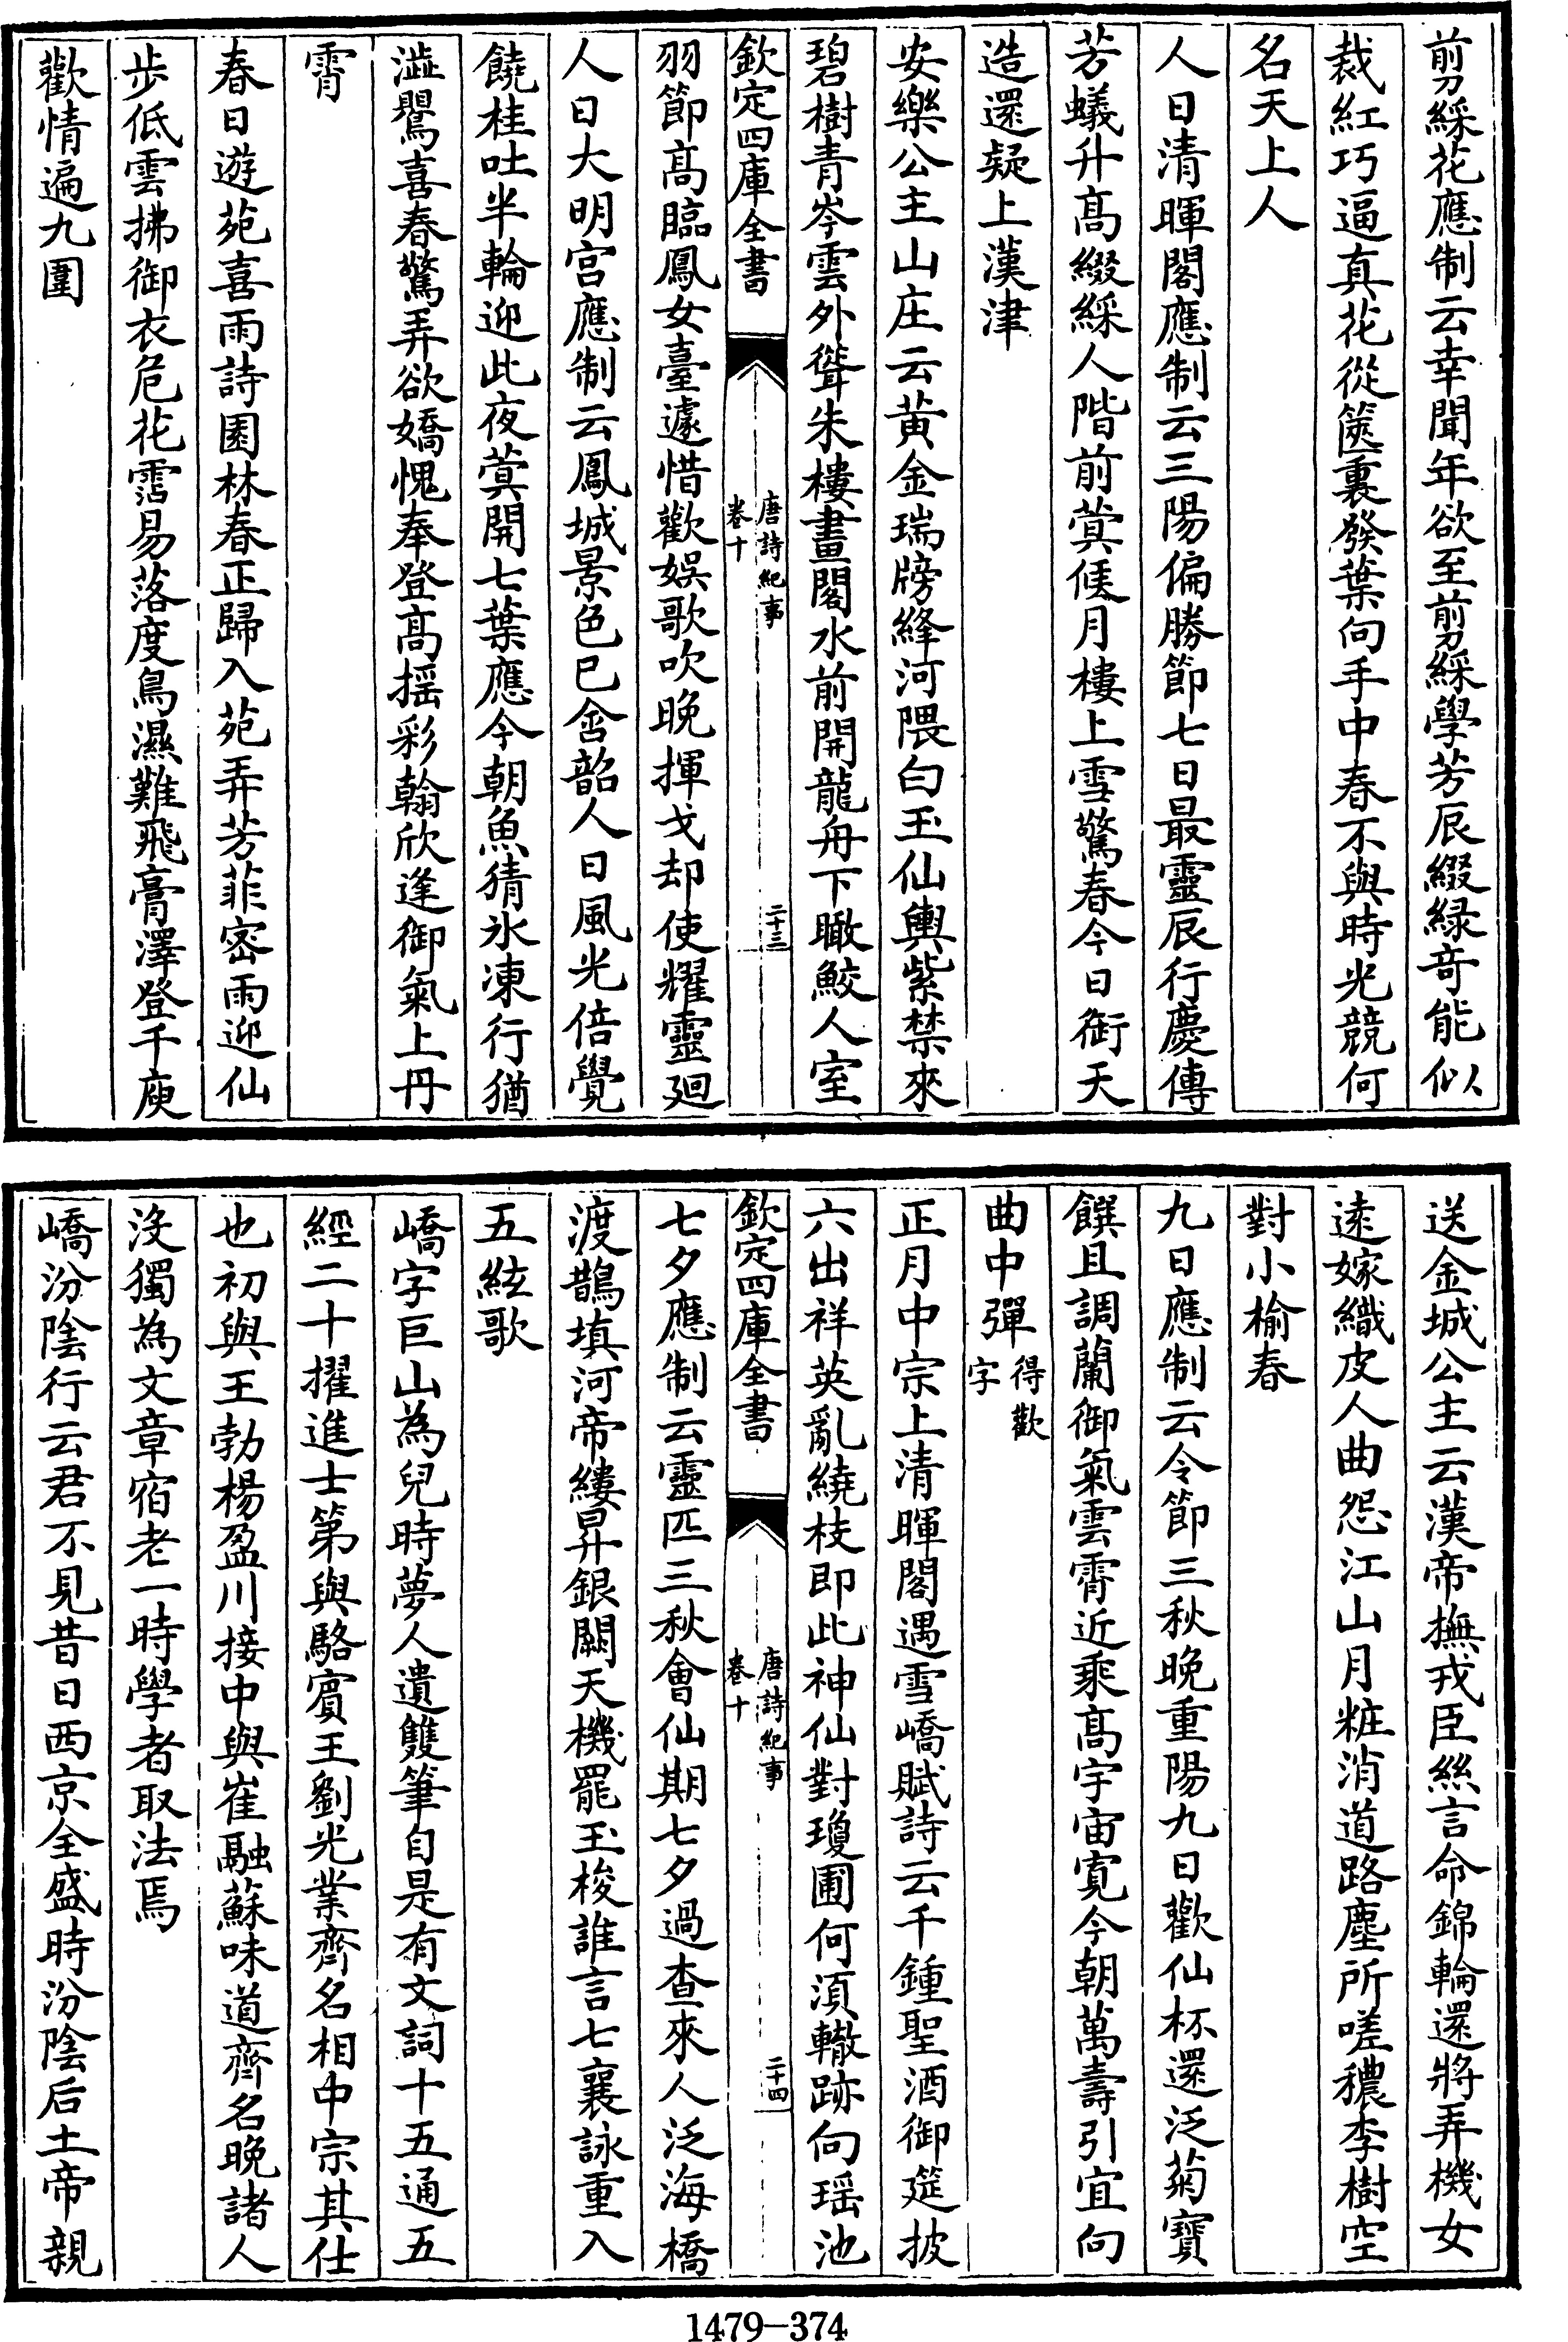 剪綵花應制云幸聞年欲至剪綵學芳辰綴緑竒能似
裁紅巧逼真花從篋裏發葉向手中春不與時光競何
名天上人
人日清暉閣應制云三陽偏勝節七日最靈辰行慶傳
芳蟻升髙綴綵人階前蓂候月樓上雪驚春今日銜天
造還疑上漢津
安樂公主山庄云黄金瑞牓絳河隈白玉仙輿紫禁來
碧樹青岑雲外聳朱樓畫閣水前開龍舟下瞰鮫人室
欽定四庫全書
唐詩紀事
卷十
二十三
羽節髙臨鳳女臺遽惜歡娯歌吹晚揮戈却使耀靈廻
人日大明宫應制云鳳城景色已含韶人日風光倍覺
饒桂吐半輪迎此夜蓂開七葉應今朝魚猜氷凍行猶
澁鸎喜春驚弄欲嬌愧奉登髙摇彩翰欣逢御氣上丹
霄
春日遊苑喜雨詩園林春正歸入苑弄芳菲宻雨迎仙
步低雲拂御衣危花霑易落度鳥濕難飛膏澤登千庾
歡情遍九圍
送金城公主云漢帝撫戎臣絲言命錦輪還將弄機女
逺嫁織皮人曲怨江山月粧消道路塵所嗟穠李樹空
對小榆春
九日應制云令節三秋晚重陽九日歡仙杯還泛菊寳
饌且調蘭御氣雲霄近乘髙宇宙寛今朝萬壽引宜向
曲中彈得歡字
正月中宗上清暉閣遇雪嶠賦詩云千鍾聖酒御筵披
六出祥英亂繞枝即此神仙對瓊圃何湏轍跡向瑶池
欽定四庫全書
唐詩紀事
卷十
二十四
七夕應制云靈匹三秋會仙期七夕過查來人泛海橋
渡鵲填河帝縷昇銀閣天機罷玉梭誰言七襄詠重入
五絃歌
嶠字巨山為兒時夢人遺雙筆自是有文詞十五通五
經二十擢進士第與駱賔王劉光業齊名相中宗其仕
也初與王勃楊盈川接中與崔融蘇味道齊名晚諸人
沒獨為文章宿老一時學者取法焉
嶠汾隂行云君不見昔日西京全盛時汾隂后土帝親
1479-374